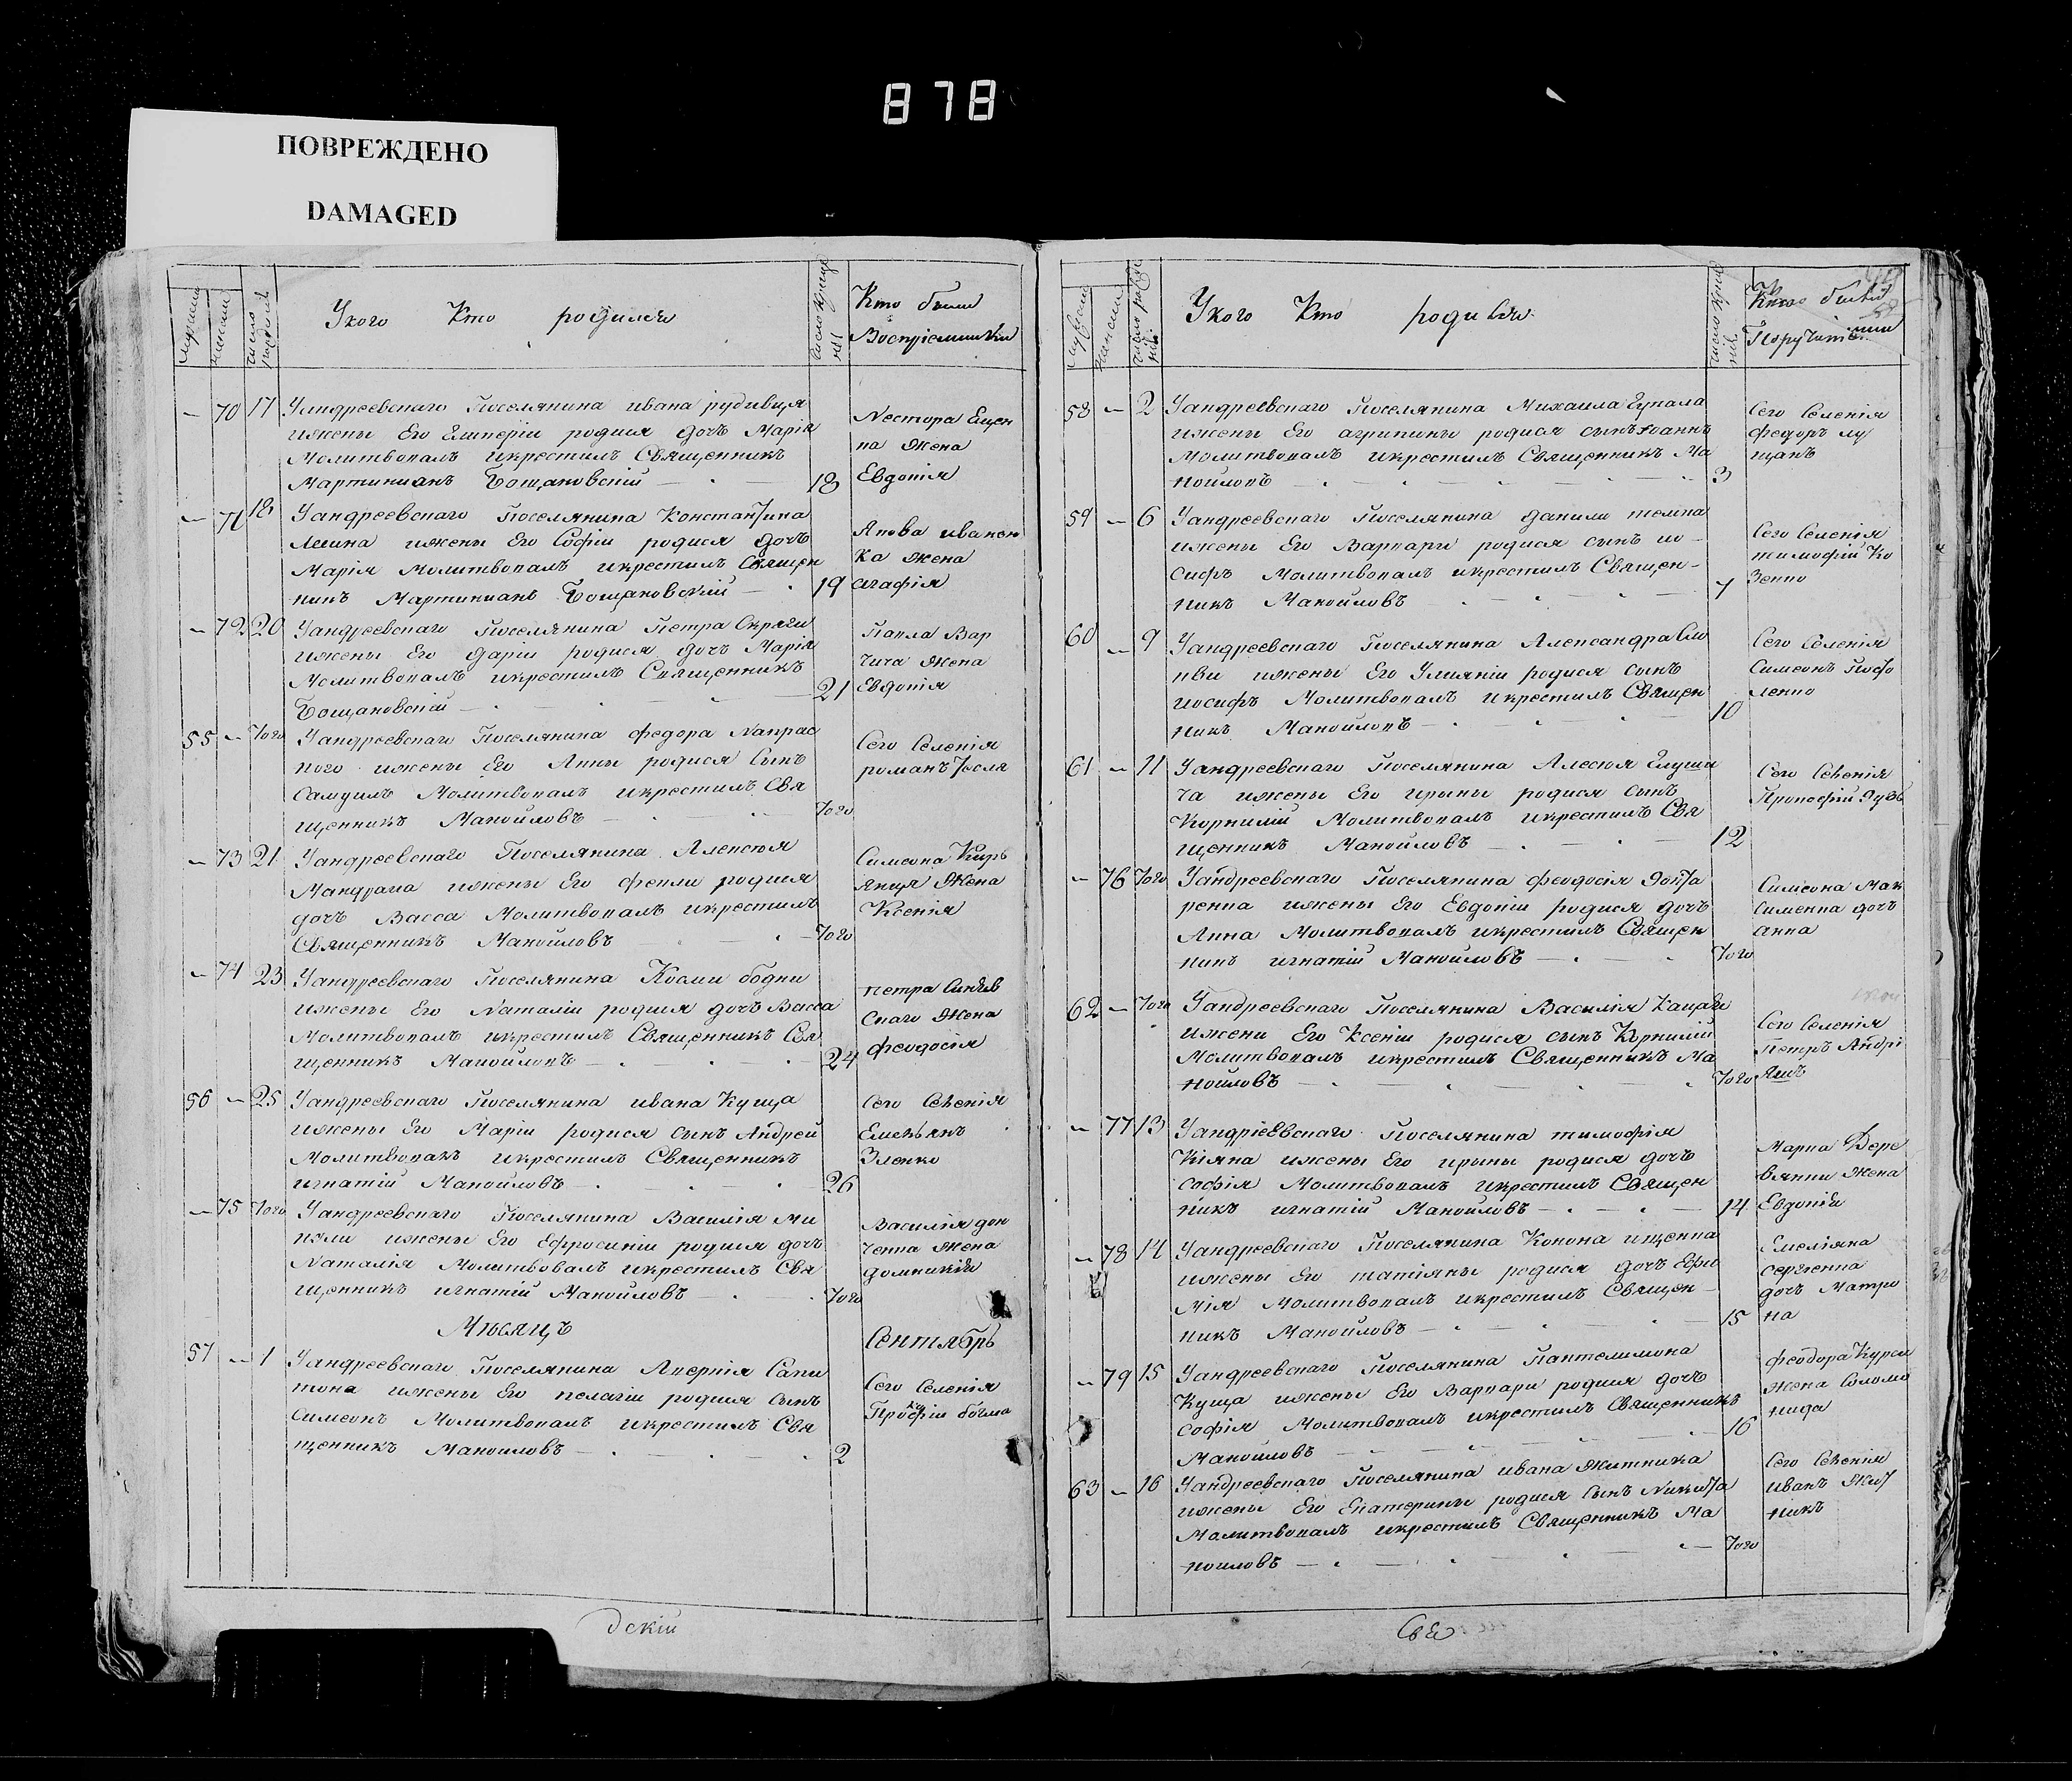 878
ПОВРЕЖДЕНО
DAMAGED
Укого Кто родился
Кто были
Воспріемники
70 17 Уандреевскаго Поселянина ивана рудивця
ижены Его Гликеріи родися дочь Марія
Молитвовалъ икрестилъ Священникъ
Мартинианъ Бощановскій 18
Нестора Ещен
ка Жена
Евдокія
71 18 Уандреевскаго Поселянина Константина
ижены Его Софіи родися дочь
Марія Молитвовалъ икрестилъ Священ
никъ Мартинианъ Бощановскій 19
Якова иванен
ка Жена
агафія
72 20 Уандреевскаго Поселянина Петра
ижены Его даріи родися дочь Марія
Молитвовалъ икрестилъ Священникъ
Бощановскій 21
Павла Вар
чича Жена
Евдокія
55 Того Уандреевскаго Поселянина федора Напрас
ного ижены Его Анны родися Сынъ
Самуилъ Молитвовалъ икрестилъ Свя
щенникъ Манойловъ Того
Сего Селенія
романъ
73 21 Уандреевскаго Поселянина Алексѣя
Мандрыка ижены Его феклы родися
дочь Васса Молитвовалъ икрестилъ
Священникъ Манойловъ Того
Симеона Кирь
якця Жена
Ксенія
74 23 Уандреевскаго Поселянина Космы бодни
ижены Его Наталіи родися дочь Васса
Молитвовалъ икрестилъ Священникъ Свя
щенникъ Манойловъ 24
петра Синѣв
скаго Жена
феодосія
56 25 Уандреевскаго Поселянина ивана Куща
ижены Его Маріи родися сынъ Андрей
Молитвовалъ икрестилъ Священникъ
игнатій Манойловъ 26
Сего Селенія
Емельянъ
Зленко
75 Того Уандреевскаго Поселянина Василія
ижены Его Ефросиніи родися дочь
Наталія Молитвовалъ икрестилъ Свя
щенникъ игнатій Манойловъ Того
Василія дон
ченка Жена
домникія
Мѣсяцъ Сентябрь
57 1 Уандреевскаго Поселянина Аверкія Сапи
тона ижены Его пелагіи родися сынъ
симеонъ Молитвовалъ икрестилъ Свя
щенникъ Манойловъ 2
Сего Селенія
Прокофій
дскій
Укого Кто родился
Кто были
Поручители
58 2 Уандреевскаго Поселянина Михаила Гупала
ижены Его агрипины родися сынъ иоаннъ
Молитвовалъ икрестилъ Священникъ Ма
нойловъ 3
Сего Селенія
федоръ лу
щанъ
59 6 Уандреевскаго Поселянина данили
ижены Его Варвары родися сынъ ио
сифъ Молитвовалъ икрестилъ Священ
никъ Манойловъ 7
Сего Селенія
тимофій Ко
зенко
60 9 Уандреевскаго Поселянина Александра
ижены Его Улияніи родися сынъ
иосифъ Молитвовалъ икрестилъ Священ
никъ Манойловъ 10
Сего Селенія
Симеонъ
ленко
61 11 Уандреевскаго Поселянина Алексѣя Глуши
ча ижены Его ирины родися сынъ
Корнилій Молитвовалъ икрестилъ Свя
щенникъ Манойловъ 12
Сего Селенія
Прокофій
76 Того Уандреевскаго Поселянина феодосія
ренка ижены Его Евдокіи родися дочь
Анна Молитвовалъ икрестилъ Священ
никъ игнатій Манойловъ Того
Симеона Мак
сименка дочь
анна
62 Того Уандреевскаго Поселянина Василія
ижены Его Ксеніи родися сынъ Корнилій
Молитвовалъ икрестилъ Священникъ Ма
нойловъ Того
Сего Селенія
Петръ Андрі
яшъ
77 13 Уандріевскаго Поселянина тимофія
Кіяна ижены Его ирины родися дочь
софія Молитвовалъ икрестилъ Священ
никъ игнатій Манойловъ 14
Марка Дере
вянки Жена
Евдокія
78 14 Уандреевскаго Поселянина Конона ищенка
ижены Его татіяны родися дочь Ефи
мія Молитвовалъ икрестилъ Священ
никъ Манойловъ 15
Емеліяна
сергіенка
дочь Матро
на
79 15 Уандреевскаго Поселянина Пантелимона
Куща ижены Его Варвары родися дочь
софія Молитвовалъ икрестилъ Священникъ
Манойловъ 16
феодора
Жена Соломо
нида
63 16 Уандреевскаго Поселянина ивана Житника
ижены Его Екатерины родися сынъ Никита
Малитвовалъ икрестилъ Священникъ Ма
нойловъ Того
Сего Селенія
иванъ Жит
никъ